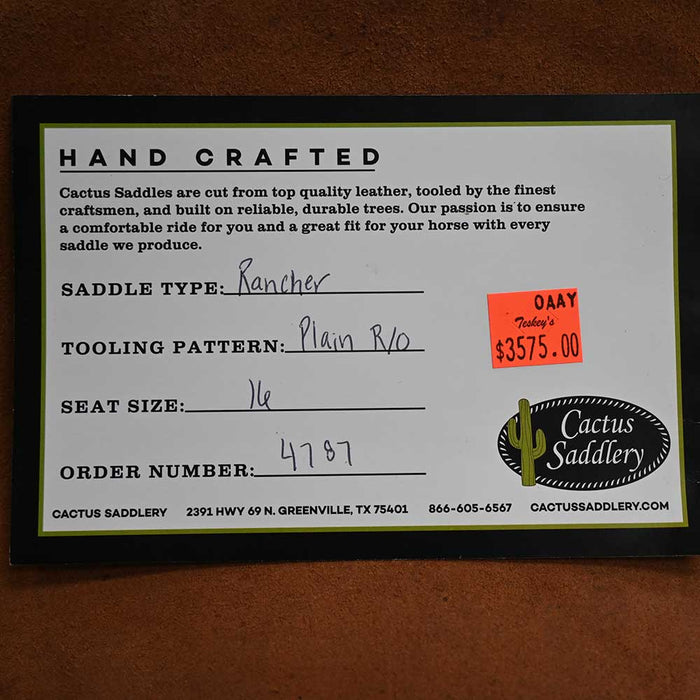 HAND CRAFTED
Cactus Saddles are cut from top quality leather, tooled by the finest
craftsmen, and built on reliable, durable trees. Our passion is to ensure
a comfortable ride for you and a great fit for your horse with every
saddle we produce.
SADDLE TYPE: Rancher
TOOLING PATTERN: Plain R/O
SEAT SIZE: 16
ORDER NUMBER: 4787
OAAY
Teskey's
$3575.00
Cactus
Saddlery
CACTUS SADDLERY 2391 HWY 69 N. GREENVILLE, TX 75401 866-605-6567 CACTUSSADDLERY.COM